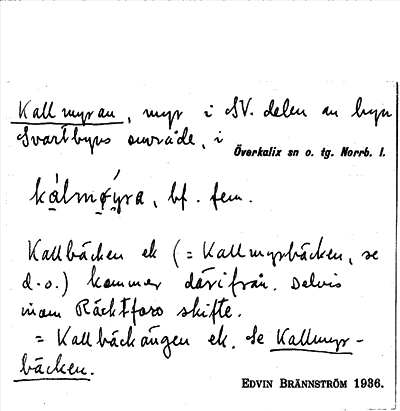 Kallmyran, myr i SV. delen av byn
Svartbyns område, i
Överkalix sn o. tg. Norrb. l.
kálmǿyra, bf. fem.
Kallbäcken ek (= Kallmyrbäcken, se
d.o.) kommer därifrån. Delvis
inom Räcktfors skifte.
= Kallbäckängen ek. Se Kallmyr-
bäcken.
EDVIN BRÄNNSTRÖM 1936.